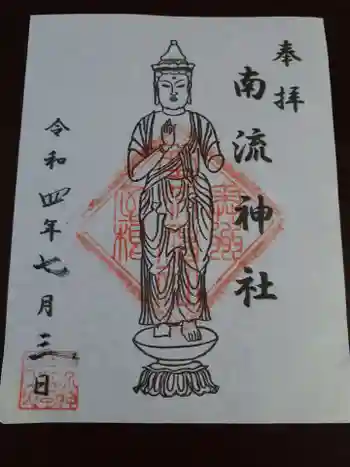 奉拝
南流神社
令和四年七月三日